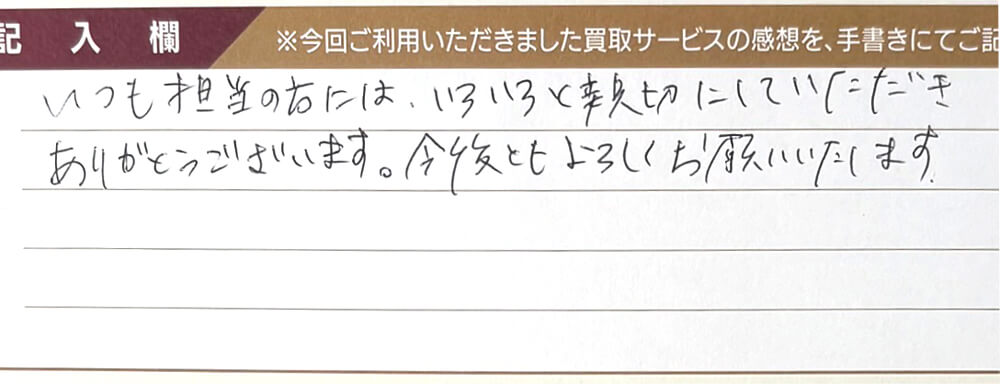 記入欄 ※今回ご利用いただきました買取サービスの感想を、手書きにてご記
いつも担当の方には、いろいろと親切にしていただき
ありがとうございます。今後ともよろしくお願いいたします.